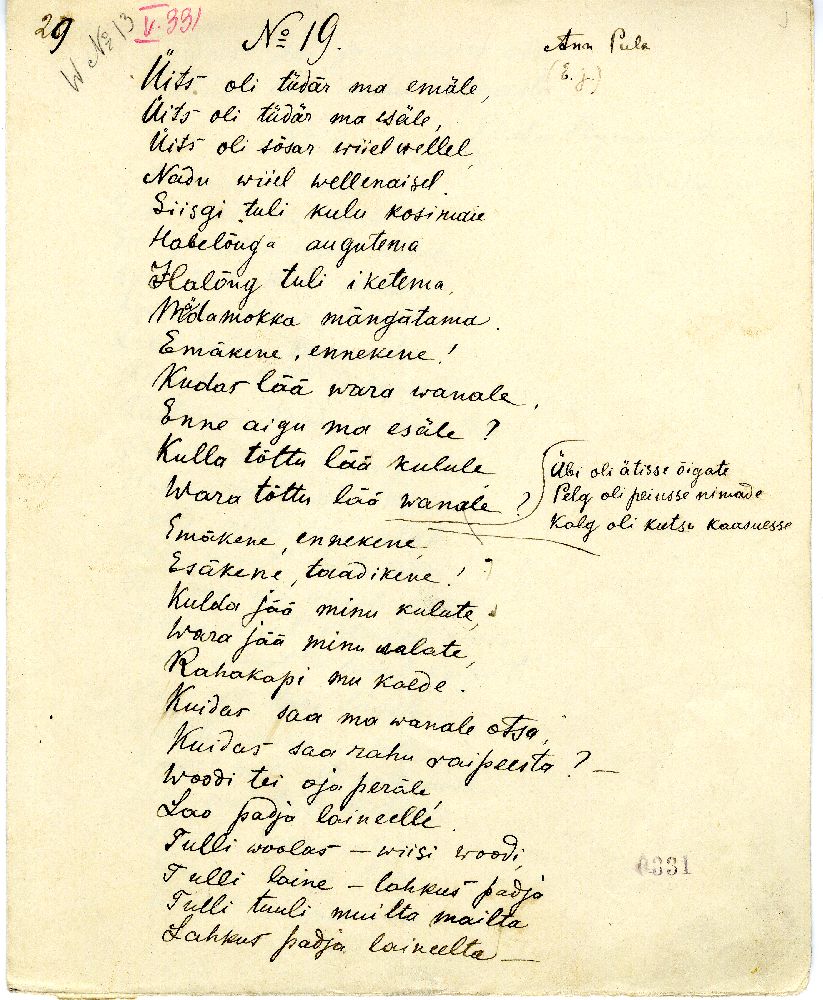 29
W № 13
V. 331
№ 19.
Ann Pula
(E. J.)
Üits oli tüdär ma emäle,
Üits oli tüdär ma esäle,
Üits oli sõsar wiiel wellel,
Nadu wiiel wellenaisel.
Siisgi tuli kulu kosimaie
Habelõuga augutema
Halõng tuli iketema,
Mädamokka mängätama.
Emäkene, ennekene!
Kudas lää wara wanale,
Enne aigu ma esäle?
Kulla tõttu lää kulule
Wara tõttu lää wanale?
Übi oli ätisse õigate
Pelg oli peiusse nimade
Kalg oli kutsu kaasuesse
Emäkene, ennekene,
Esäkene, taadikene!
Kulda jää minu kulute,
Wara jää minu salate,
Rahakapi mu kaede.
Kuidas saa ma wanale otsa,
Kuidas saa rahu raipeesta? —
Woodi tei oja peräle
Lao padja laineelle.
Tulli woolas – wiisi woodi,
Tulli laine – lahkus padja
Tulli tuuli muilta mailta
Lahkus padja laineelta —
0331